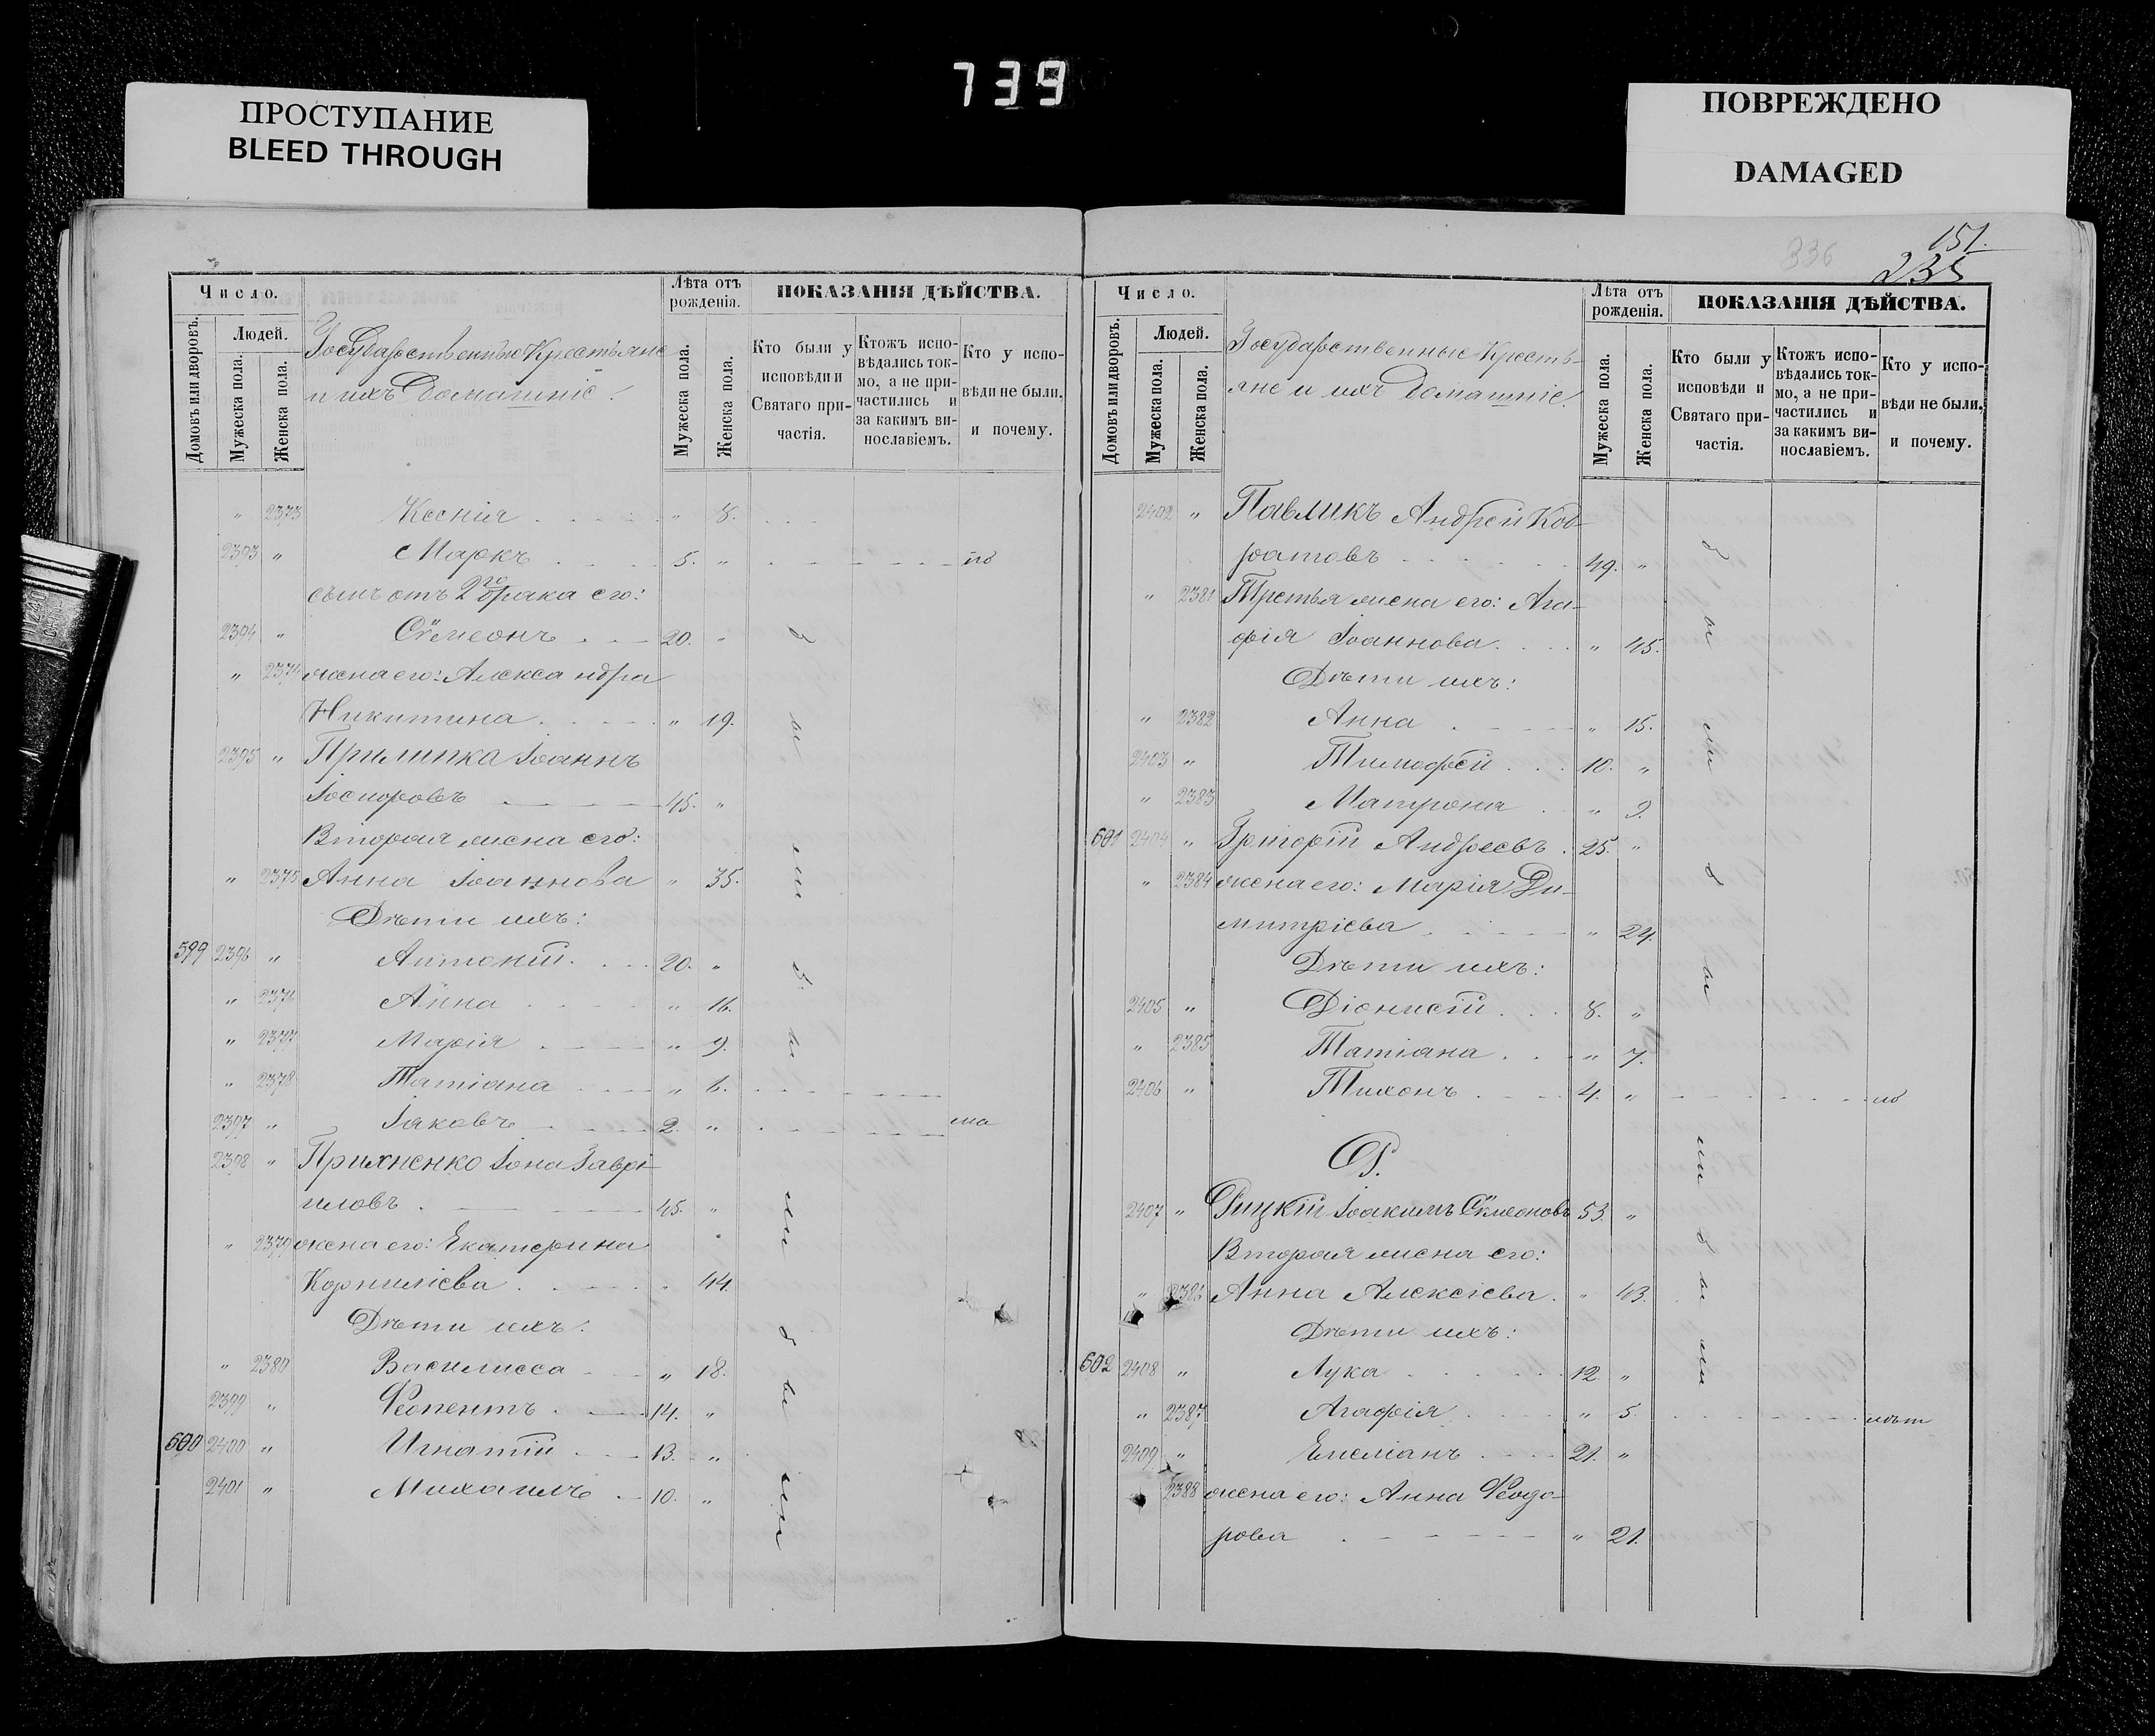 739
ПРОСТУПАНИЕ
BLEED THROUGH
ПОВРЕЖДЕНО
DAMAGED
Число.
Домовъ или дворовъ.
Людей.
Мужеска пола.
Женска пола.
Государственные Крестьяне
и ихъ Домашніе.
Лѣта отъ рожденія.
Мужеска пола.
Женска пола.
ПОКАЗАНІЯ ДѢЙСТВА.
Кто были у исповѣди и Святаго причастія.
Ктожъ исповѣдались токмо, а не причастились и за какимъ винословіемъ.
Кто у исповѣди не были, и почему.
" 2373 Ксенія " 8.
2393 " Маркъ 5. "
сынъ отъ 2го брака его:
2394 " Сѷмеонъ 20. "
" 2374 жена его: Александра
Никитина " 19.
2395 " Прилипка Іоаннъ
Іосифовъ 45. "
Вторая жена его:
" 2375 Анна Іоаннова " 35.
Дѣти ихъ:
599 2396 " Антоній 20. "
" 2376 Анна " 16.
" 2377 Марія " 9.
" 2378 Татіана " 6.
2397 " Іаковъ 2. " ма
2398 " Прихненко Іона Гаврі-
иловъ 45. "
" 2379 жена его: Екатерина
Корниліева 44.
Дѣти ихъ:
" 2380 Василисса " 18.
2399 " Ѳеопентъ 14. "
600 2400 " Игнатій 13. "
2401 " Михаилъ 10. "
б ы л и б ы л и б ы л и
336
151.
235
Число.
Домовъ или дворовъ.
Людей.
Мужеска пола.
Женска пола.
Государственные Кресть-
яне и ихъ Домашніе.
Лѣта отъ рожденія.
Мужеска пола.
Женска пола.
ПОКАЗАНІЯ ДѢЙСТВА.
Кто были у исповѣди и Святаго причастія.
Ктожъ исповѣдались токмо, а не причастились и за какимъ винословіемъ.
Кто у исповѣди не были, и почему.
2402 " Павликъ Андрей Код-
ратовъ 49. "
" 2381 Третья жена его: Ага-
фія Іоаннова " 45.
Дѣти ихъ:
" 2382 Анна " 15.
2403 " Тимофей 10. "
" 2383 Матрона " 9.
601 2404 " Григорій Андреевъ 25. "
" 2384 жена его: Марія Ди-
митріева " 24.
Дѣти ихъ:
2405 " Діонисій 8. "
" 2385 Татіана " 7.
2406 " Тихонъ 4. "
Р.
2407 " Рицкій Іоакимъ Сѷмеоновъ 53. "
Вторая жена его:
" 2386 Анна Алексіева " 43.
Дѣти ихъ:
602 2408 " Лука 12. "
" 2387 Агафія " 5.
2409 " Емеліанъ 21. "
2388 жена его: Анна Ѳеодо-
рова " 21.
б ы л и б ы л и б ы л и